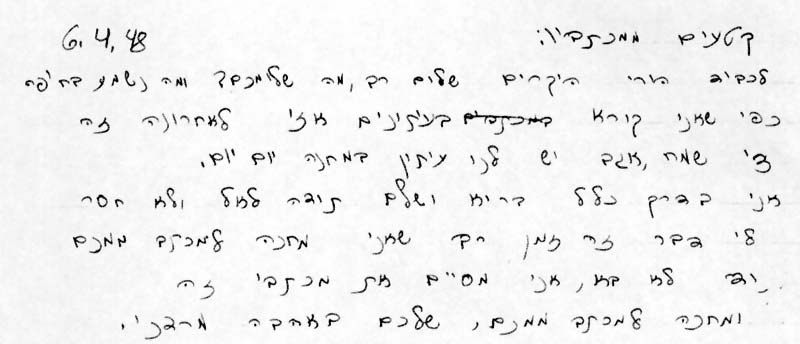 קטעים ממכתביו: 6.4.48
לכביד הורי היקרים שלום רב, מה שלומכם? ומה נשמע בחיפה
כפי שאני קורא במכתבים בעיתינים אזי לאחרונה זה
די שמח, אגב יש לנו עיתין במחנה יום יום.
אני בדרך כלל בריא ושלם תודה לאל ולא חסר
לי דבר זה זמן רב שאני מחכה למכתב ממכם
ועוד לא בא, אני מסיים את מכתבי זה
ומחכה למכתב ממכם, שלכם באהבה מרדכי.